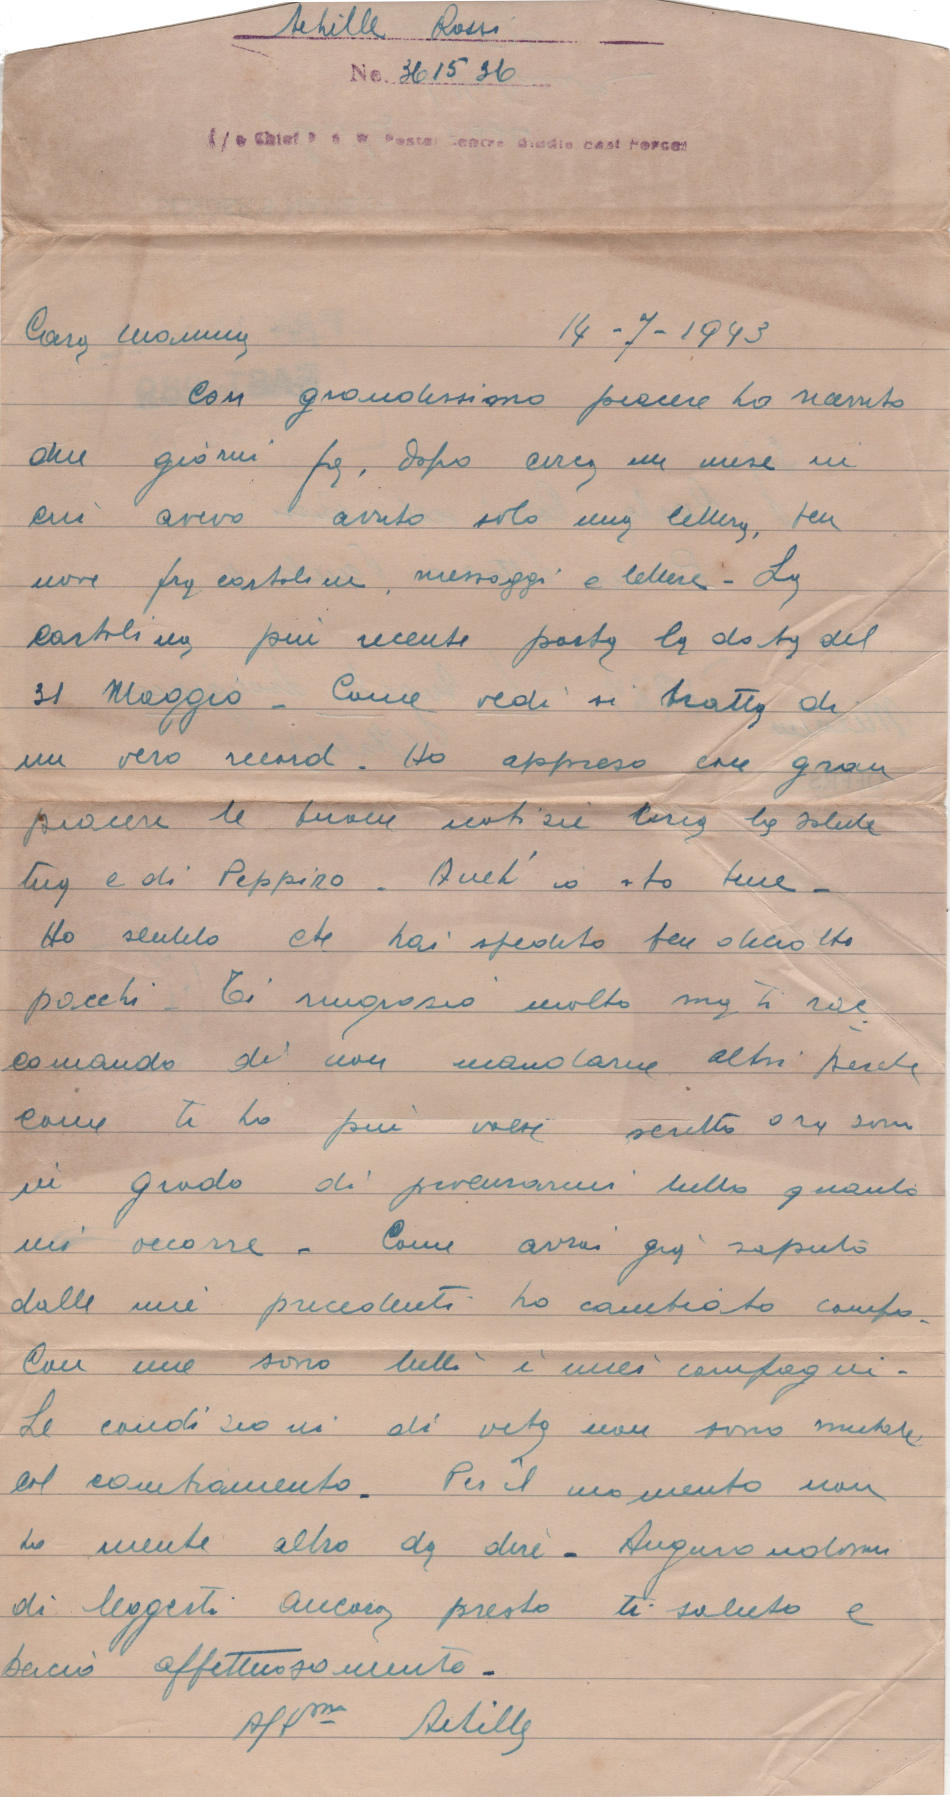 Achille Rossi
No. 361536
c/o Chief P. O. W. Postal Centre Middle East Forces
Cara mamma 14-7-1943
Con grandissimo piacere ho ricevuto
due giorni fa, dopo circa un mese in
cui avevo avuto solo una lettera, ben
nove fra cartoline, messaggi e lettere - La
cartolina più recente porta la data del
31 Maggio - Come vedi si tratta di
un vero record. Ho appreso con gran
piacere le buone notizie circa la salute
tua e di Peppino. Anch'io sto bene -
Ho sentito che hai spedito ben diciotto
pacchi - Ti ringrazio molto ma ti rac
comando di non mandarne altri perché
come ti ho più volte scritto ora sono
in grado di procurarmi tutto quanto
mi occorre - Come avrai già saputo
dalle mie precedenti ho cambiato campo -
Con me sono tutti i miei compagni -
Le condizioni di vita non sono mutate
col cambiamento. Per il momento non
ho niente altro da dire - Augurandomi
di leggerti ancora presto ti saluto e
bacio affettuosamente -
Aff.mo Achille